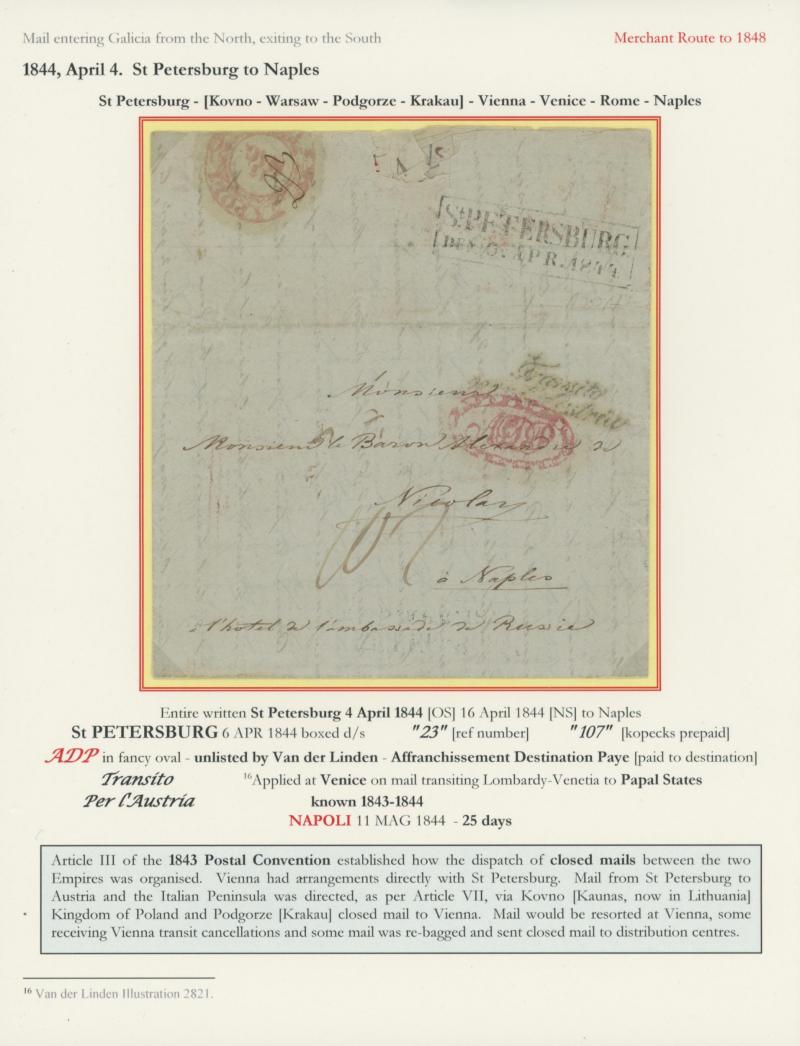 Mail entering Galicia from the North, exiting to the South
Merchant Route to 1848
1844, April 4. St Petersburg to Naples
St Petersburg - [Kovno - Warsaw - Podgorze - Krakau] - Vienna - Venice - Rome - Naples
St. PETERSBURG
APR. 1844
Transito
Monsieur
Monsieur le Baron Alexandre de
Nicolay
107
à Naples
à l'hotel de l'ambassade de Russie
Entire written St Petersburg 4 April 1844 [OS] 16 April 1844 [NS] to Naples
St PETERSBURG 6 APR 1844 boxed d/s "23" [ref number] "107" [kopecks prepaid]
ADP in fancy oval - unlisted by Van der Linden - Affranchissement Destination Paye [paid to destination]
Transito 16Applied at Venice on mail transiting Lombardy-Venetia to Papal States
Per l'Austria known 1843-1844
NAPOLI 11 MAG 1844 - 25 days
Article III of the 1843 Postal Convention established how the dispatch of closed mails between the two
Empires was organised. Vienna had arrangements directly with St Petersburg. Mail from St Petersburg to
Austria and the Italian Peninsula was directed, as per Article VII, via Kovno [Kaunas, now in Lithuania]
Kingdom of Poland and Podgorze [Krakau] closed mail to Vienna. Mail would be resorted at Vienna, some
receiving Vienna transit cancellations and some mail was re-bagged and sent closed mail to distribution centres.
16 Van der Linden Illustration 2821.